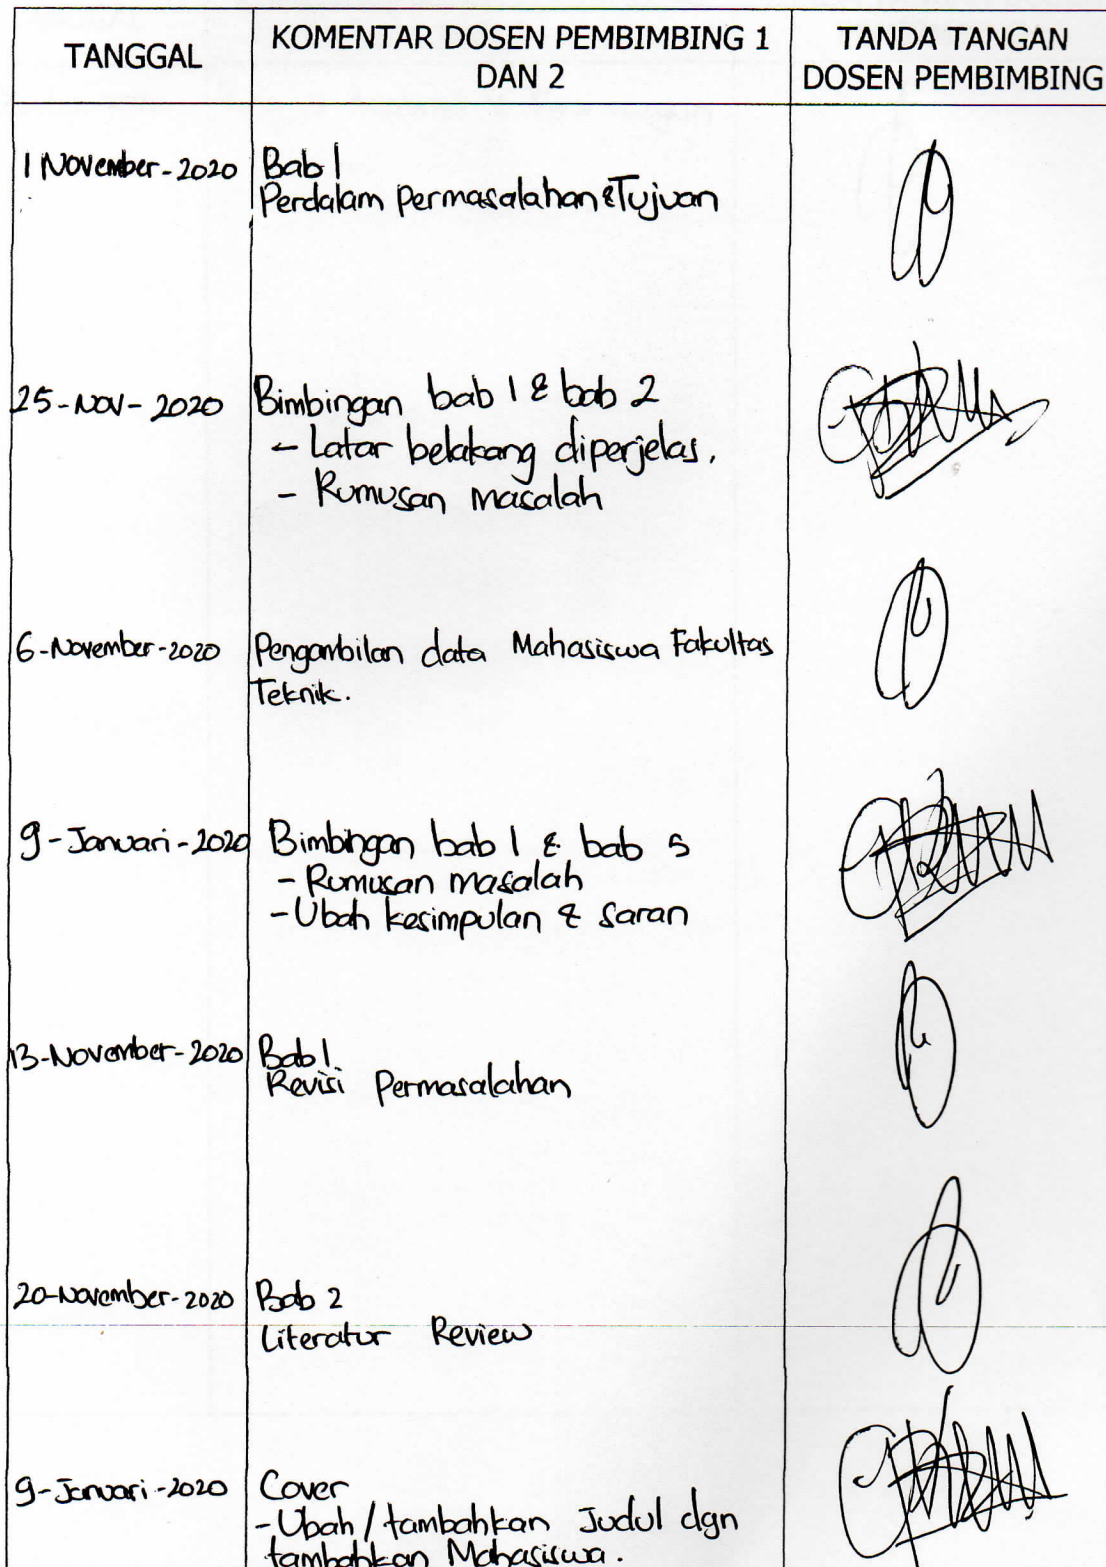 TANGGAL
KOMENTAR DOSEN PEMBIMBING 1
DAN 2
TANDA TANGAN
DOSEN PEMBIMBING
1 November-2020
Bab 1
Perdalam Permasalahan & Tujuan
25-NOV-2020
Bimbingan bab 1 & bab 2
- Latar belakang diperjelas.
- Rumusan masalah
6-November-2020
Pengambilan data Mahasiswa Fakultas
Teknik.
9-Januari-2020
Bimbingan bab 1 & bab 5
- Rumusan masalah
- Ubah kesimpulan & saran
13-November-2020
Bab 1.
Revisi Permasalahan
20-November-2020
Bab 2
Literatur Review
9-Januari-2020
Cover
- Ubah / tambahkan Judul dgn
tambahkan Mahasiswa.